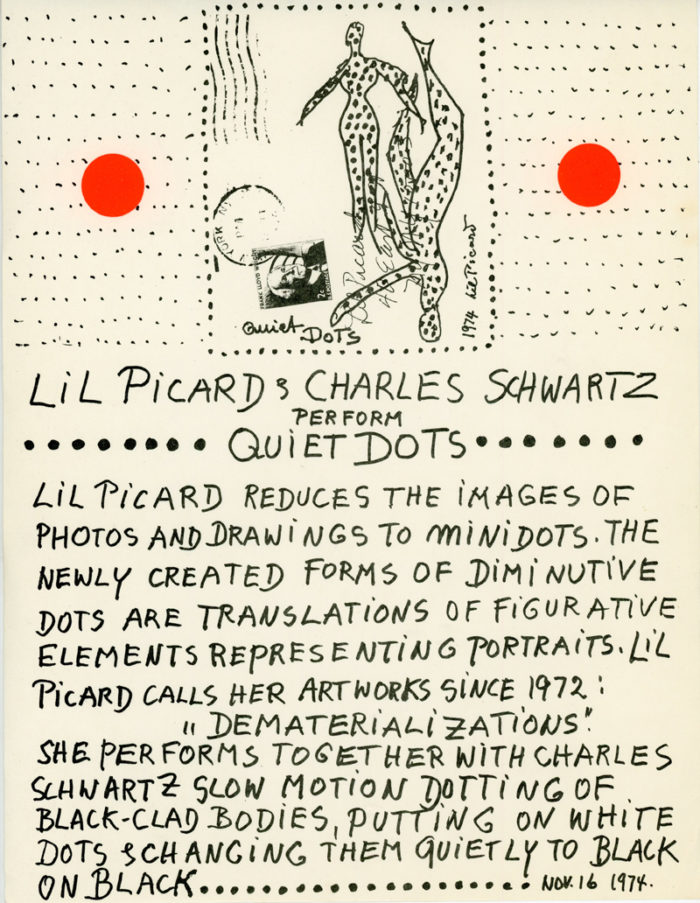 YORK N.Y.
FRANK LLOYD WRIGHT
2c
Picard
East
Quiet DOTS
1974 Lil Picard
LiL PiCARD & CHARLES SCHWARTZ
PERFORM
QUiET DOTS
LiL PiCARD REDUCES THE iMAGES OF
PHOTOS AND DRAWiNGS TO MiNiDOTS. THE
NEWLY CREATED FORMS OF DiMiNUTiVE
DOTS ARE TRANSLATIONS OF FiGURATiVE
ELEMENTS REPRESENTiNG PORTRAiTS. LiL
PiCARD CALLS HER ARTWORKS SiNCE 1972:
"DEMATERIALiZATiONS".
SHE PERFORMS TOGETHER WiTH CHARLES
SCHWARTZ SLOW MOTiON DOTTiNG OF
BLACK-CLAD BODiES, PUTTiNG ON WHiTE
DOTS & CHANGiNG THEM QUiETLY TO BLACK
ON BLACK.............................. NOV. 16 1974.